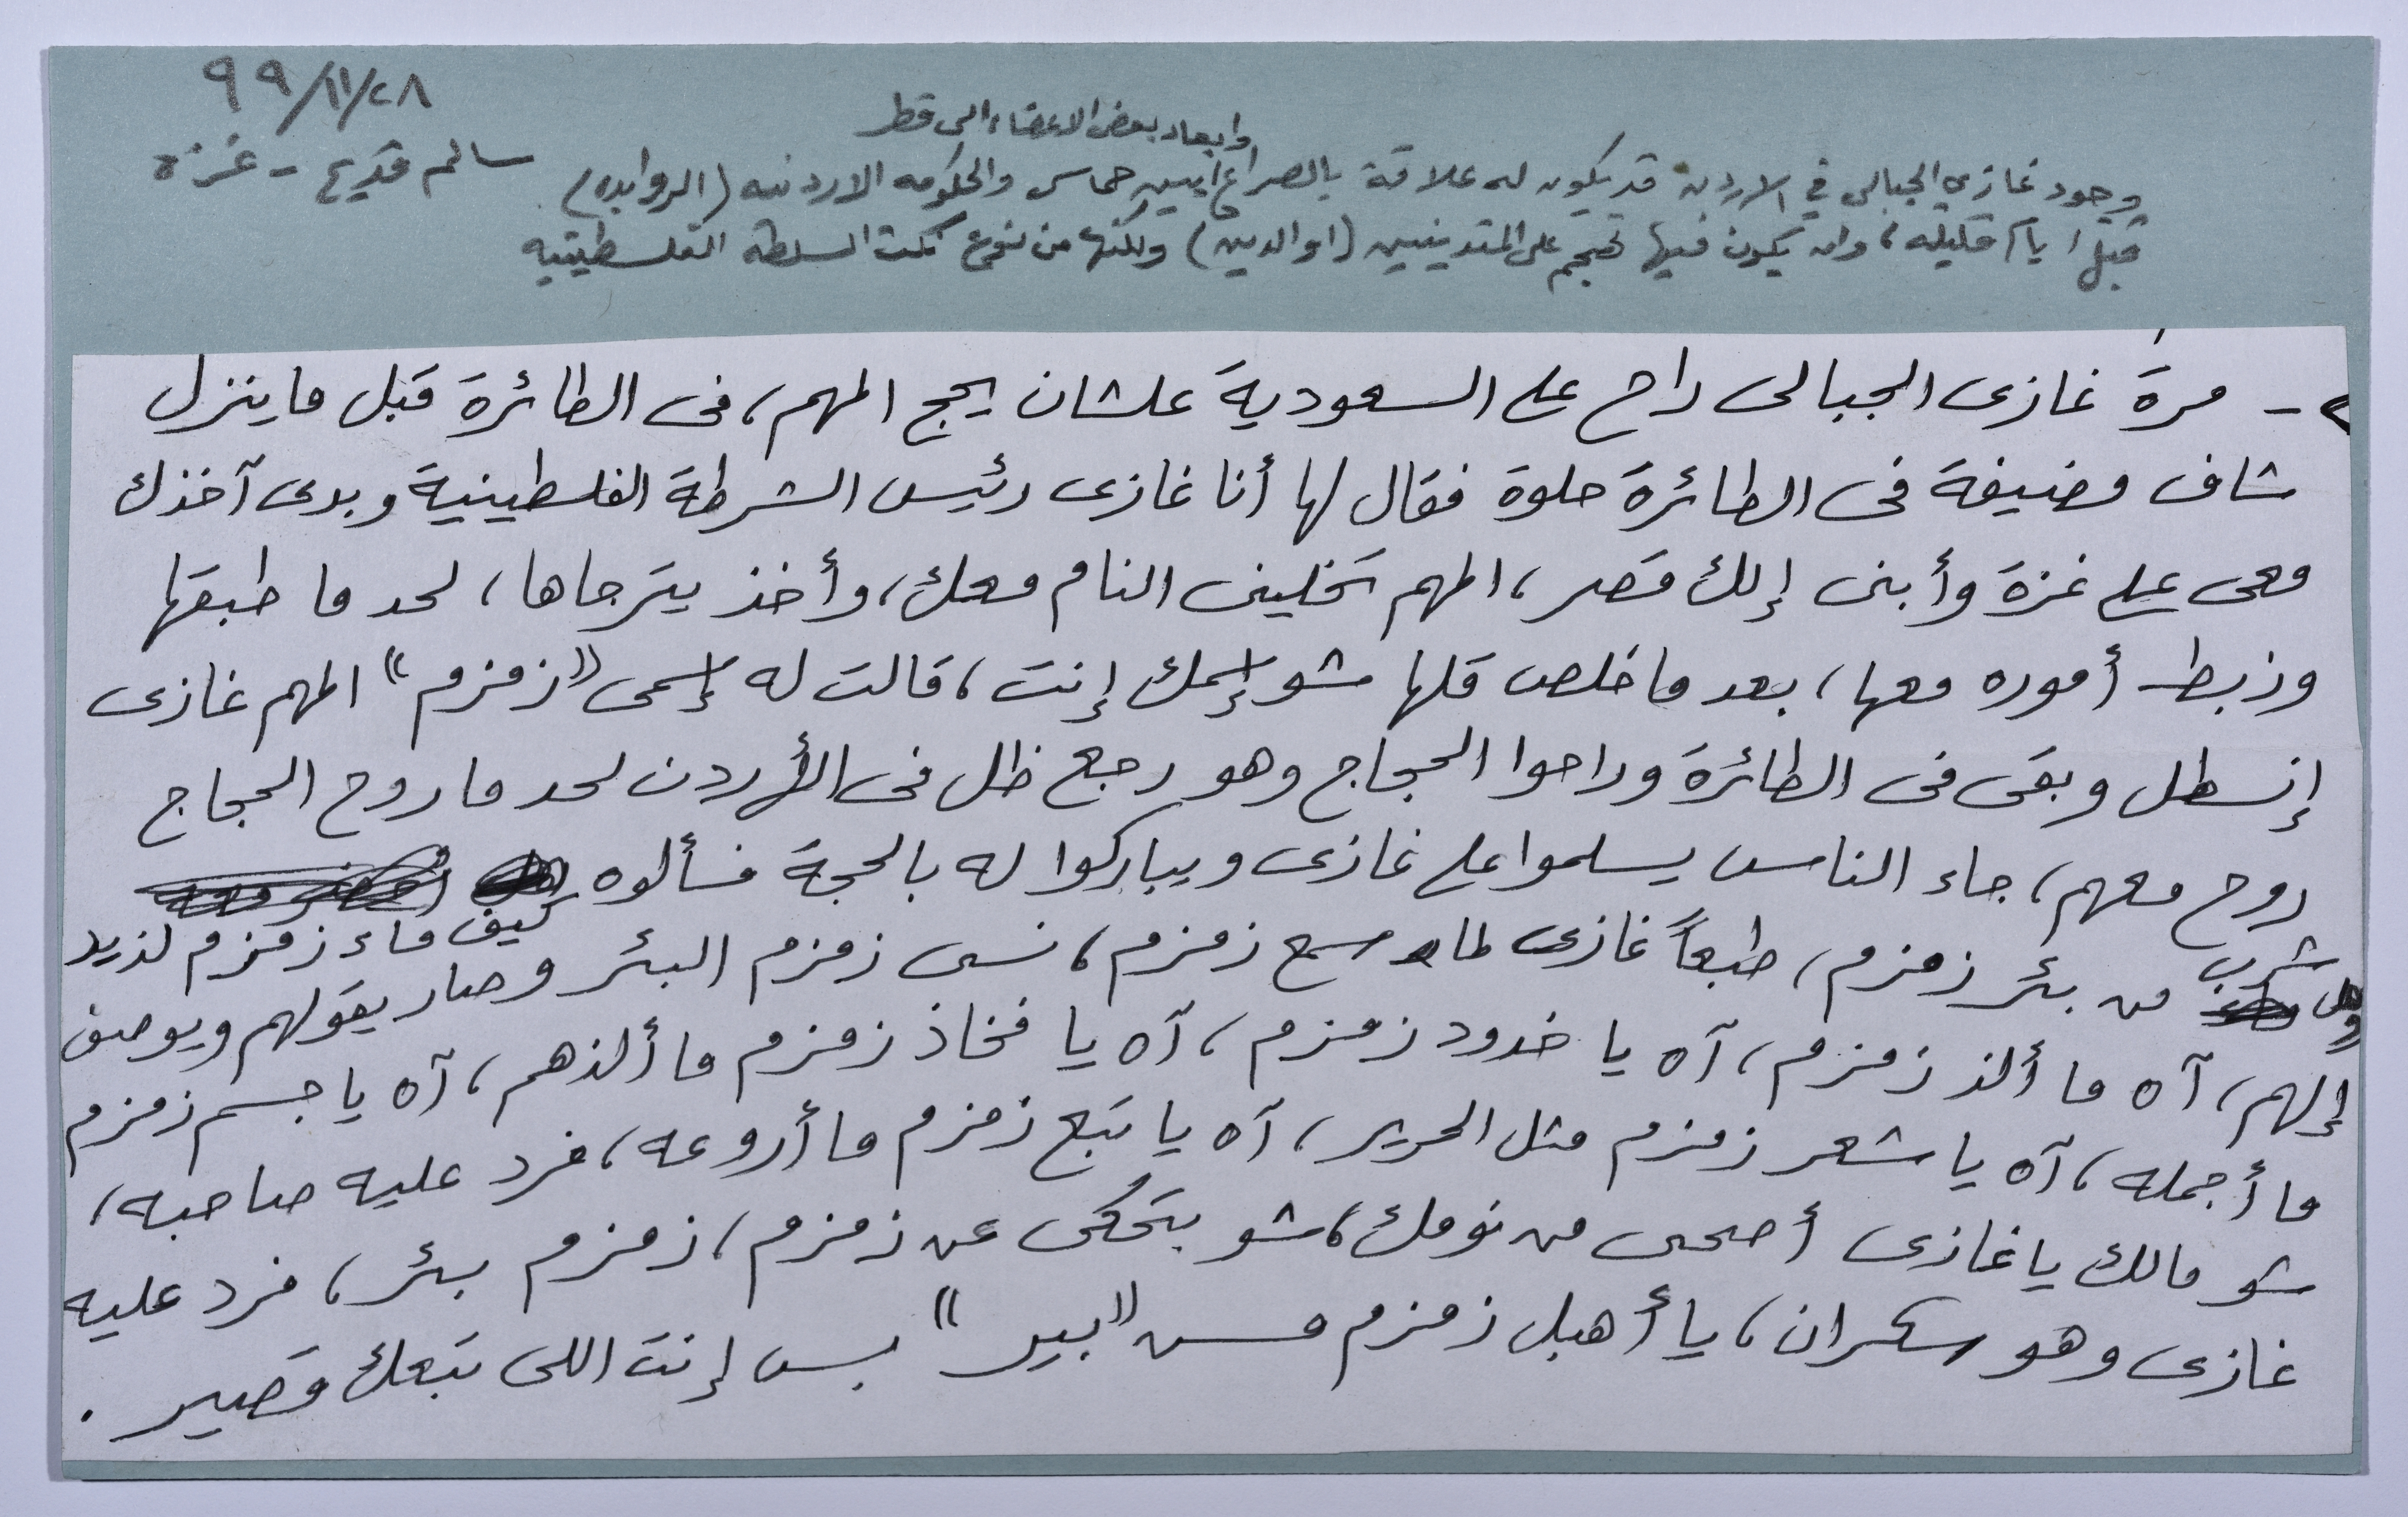 ٩٩/١١/٢٨
سالم قديح - غزة
وابعاد بعض الاعضاء الى قطر
وجود غازي الجبالي في الاردن قد يكون له علاقة بالصراع بين حماس والحكومه الاردنيه (الروابده)
قبل ايام قليله، وان يكون فيها تهجم على المتدينيين (او الدين) ولكنها من نوع نكت السلطه الفلسطينيه
- مرة غازى الجبالى راح على السعودية علشان يحج المهم، فى الطائرة قبل ما ينزل
شاف مضيفة فى الطائرة حلوة فقال لها أنا غازى رئيس الشرطة الفلسطينية وبدى آخذك
معى على غزة وأبنى إلك قصر، المهم تخلينى النام معك، وأخذ يترجاها، لحد ما طبقها
وزبط أموره معها، بعد ما خلص قلها شو إسمك إنت، قالت له إسمى "زمزم" المهم غازى
إنسطل وبقى فى الطائرة وراحوا الحجاج وهو رجع ظل فى الأردن لحد ما روح الحجاج
روح معهم، جاء الناس يسلموا على غازى ويباركوا له بالحجة فسألوه كيف ماء زمزم لذيد
وهل شرب من بئر زمزم، طبعاً غازى لما سمع زمزم، نسى زمزم البئر وصار يقولهم ويوصف
إلهم، آه ما ألذ زمزم، آه يا خدود زمزم، آه يا فخاذ زمزم ما ألذهم، آه يا جسم زمزم
ما أجمله، آه يا شعر زمزم مثل الحرير، آه يا تبع زمزم ما أروعه، فرد عليه صاحبه،
شو مالك يا غازى أصحى من نومك، شو بتحكى عن زمزم، زمزم بئر، فرد عليه
غازى وهو سكران، يا أهبل زمزم مــس "بير" بس إنت اللى تبعك قصير .